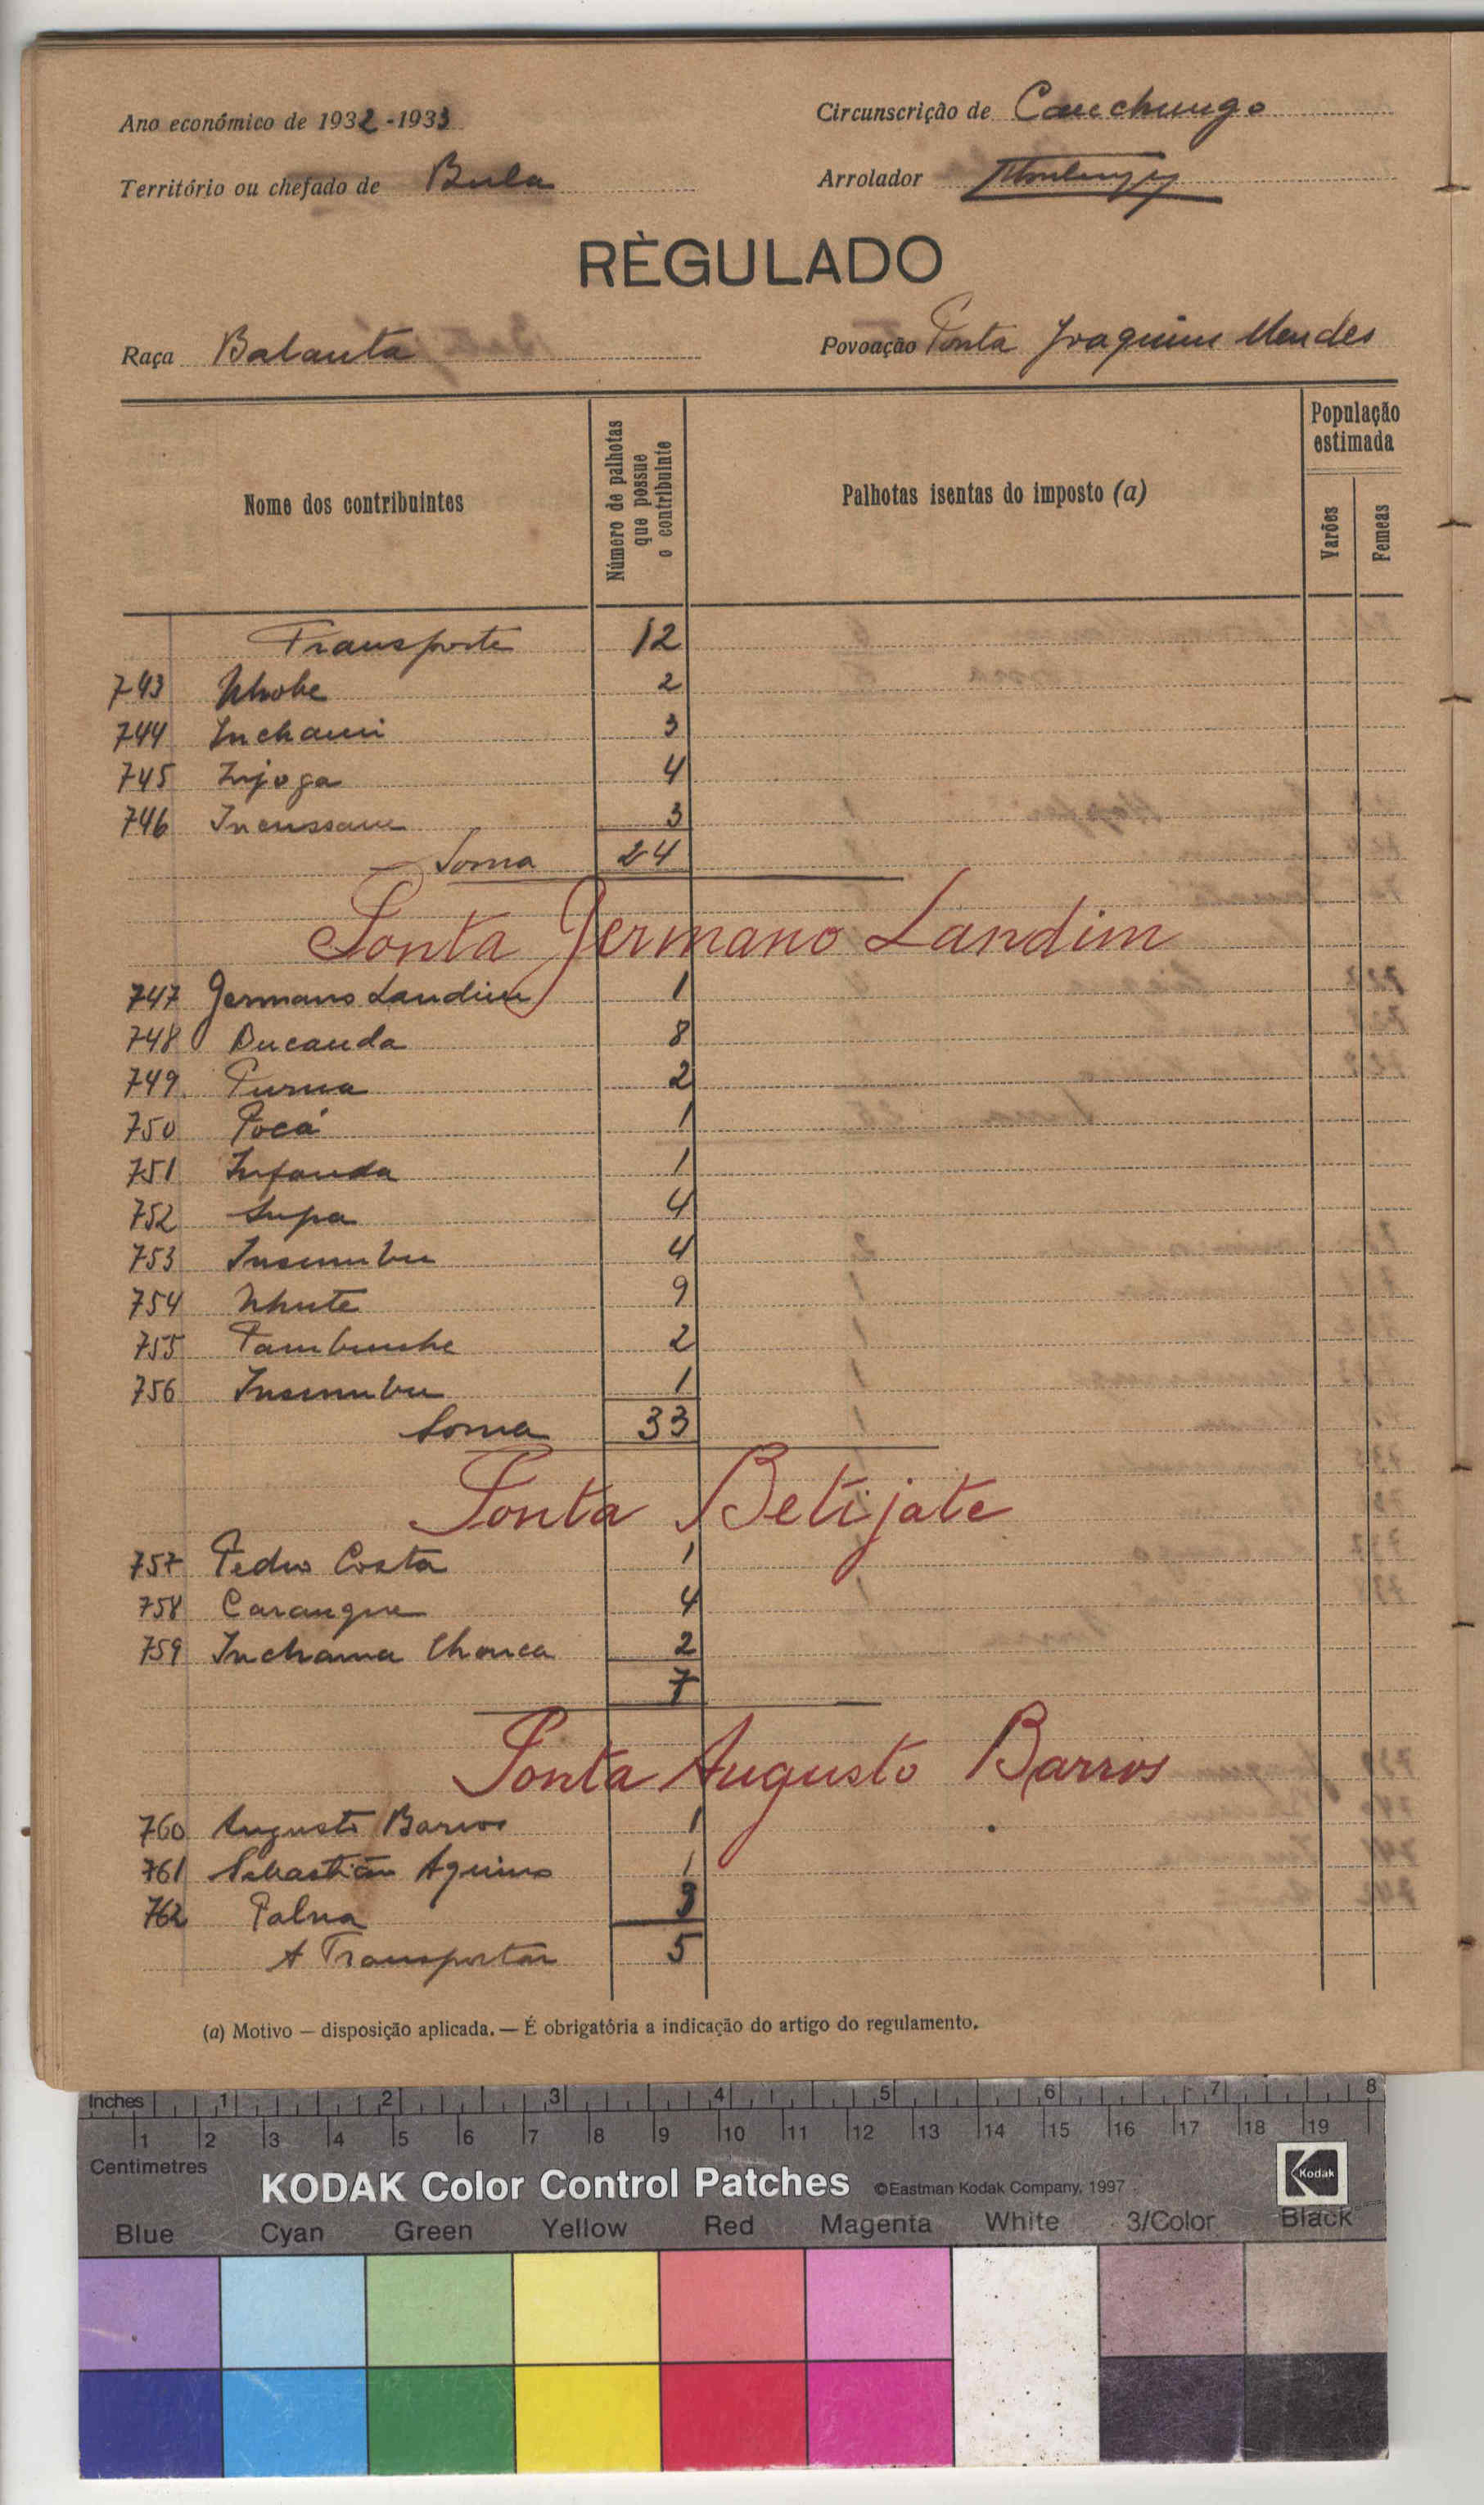 Ano económico de 1932-1933
Circunscrição de Canchungo
Território ou chefado de Bula
Arrolador
RÈGULADO
Raça Balanta
Povoação Ponta Joaquim Mendes
Nome dos contribuintes
Número de palhotas que possue o contribuinte
Palhotas isentas do imposto (a)
População estimada
Varões
Femeas
Transporte 12
743 Nhobe 2
744 Inchami 3
745 Injoga 4
746 Incussave 3
Soma 24
Ponta Germano Landim
747 Germano Landim 1
748 Ducanda 8
749 Turna 2
750 Pocá 1
751 Infanda 1
752 Supa 4
753 Insumbu 4
754 Nhute 9
755 Tambunhe 2
756 Insumbu 1
Soma 33
Ponta Betijate
757 Pedro Costa 1
758 Carangue 4
759 Inchama Chonca 2
7
Ponta Augusto Barros
760 Augusto Barros 1
761 Sebastião Aquino 1
762 Palna 3
A Transportar 5
(a) Motivo — disposição aplicada. — É obrigatória a indicação do artigo do regulamento.
Inches 1 2 3 4 5 6 7 8
1 2 3 4 5 6 7 8 9 10 11 12 13 14 15 16 17 18 19
Centimetres
KODAK Color Control Patches ©Eastman Kodak Company, 1997 Kodak
Blue Cyan Green Yellow Red Magenta White 3/Color Black